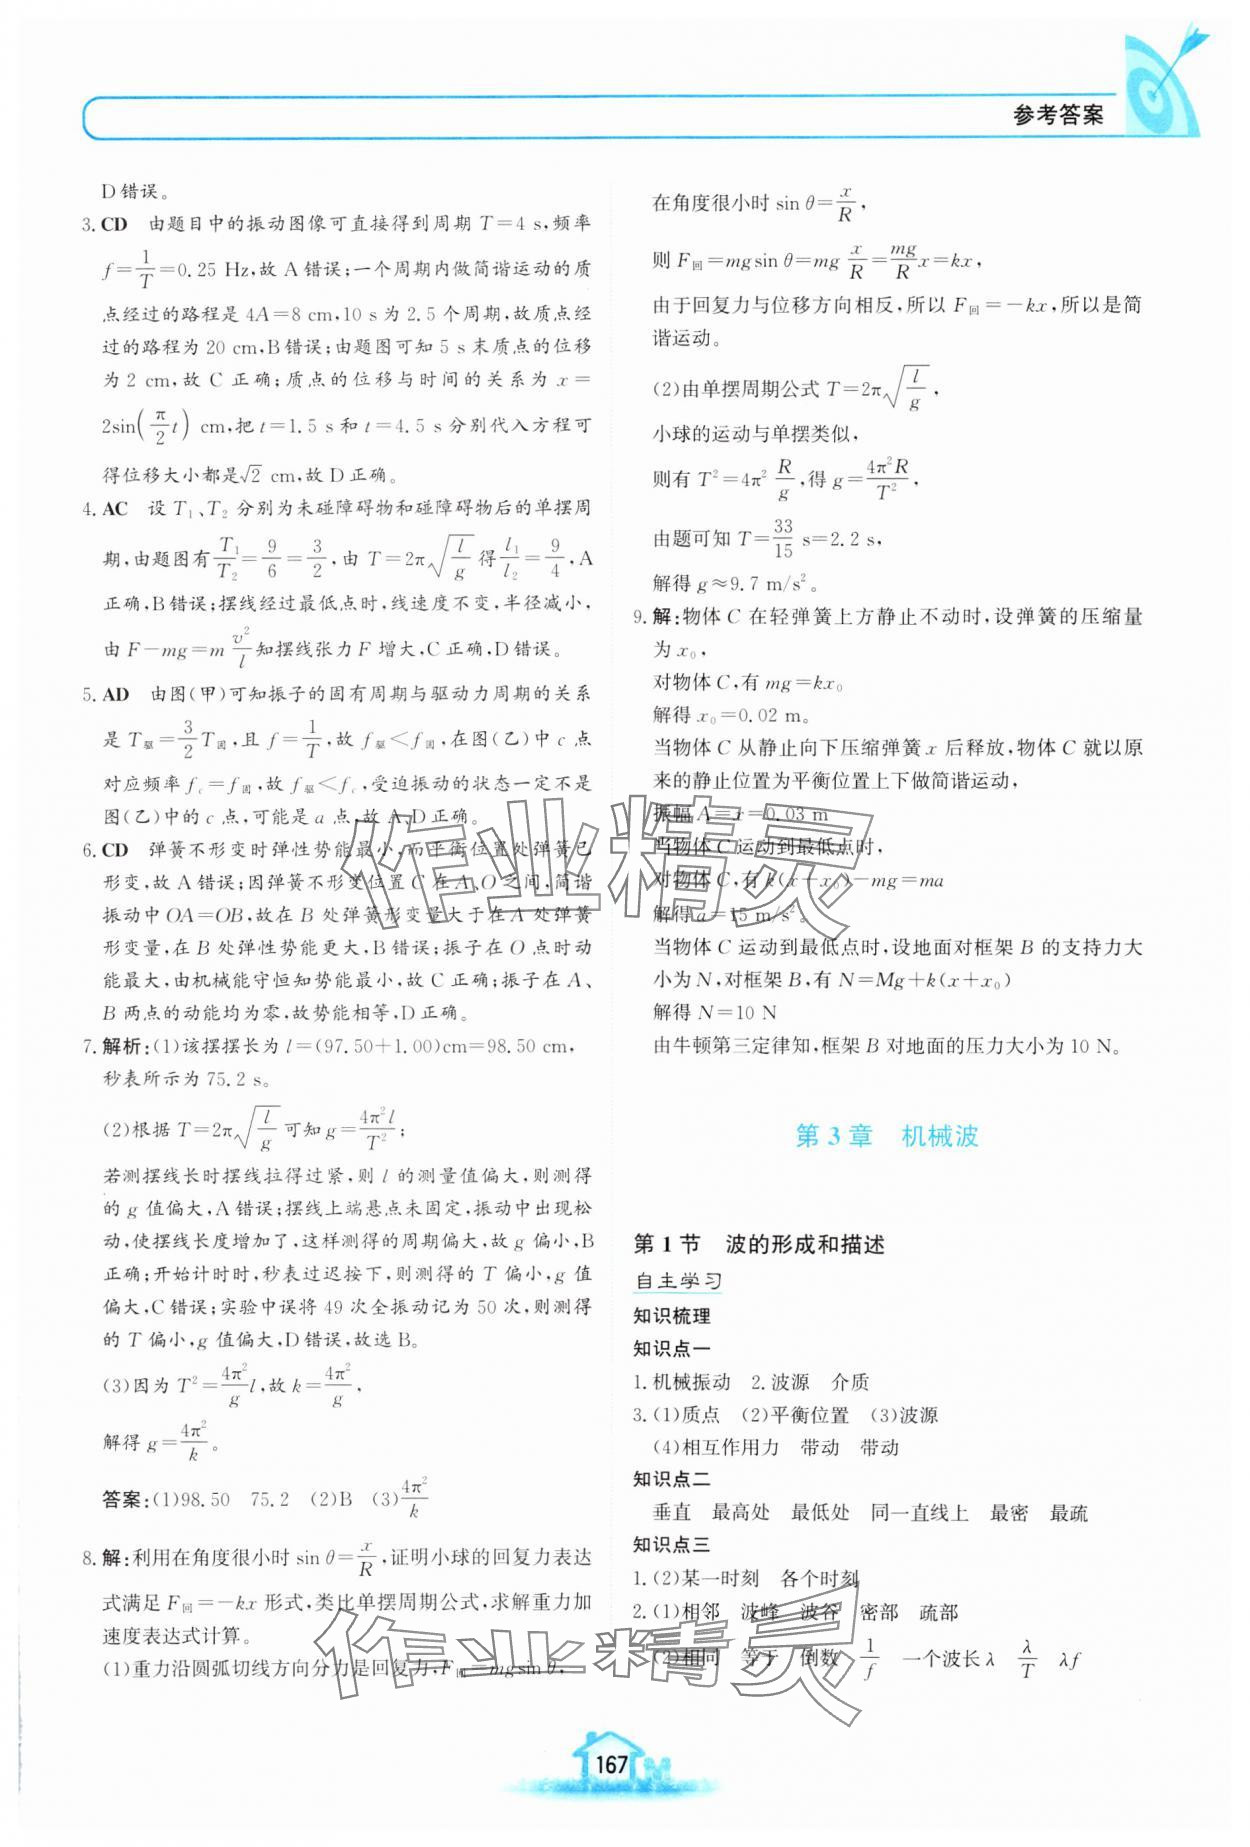 参考答案
D错误。
3. CD 由题目中的振动图像可直接得到周期 T=4 s,频率
f=1/T=0.25 Hz,故A错误;一个周期内做简谐运动的质
点经过的路程是 4A=8 cm,10 s为 2.5 个周期,故质点经
过的路程为 20 cm,B错误;由题图可知 5 s末质点的位移
为 2 cm,故 C 正确;质点的位移与时间的关系为 x=
2sin(π/2 t) cm,把 t=1.5 s 和 t=4.5 s 分别代入方程可
得位移大小都是√2 cm,故 D 正确。
4. AC 设 T₁、T₂ 分别为未碰障碍物和碰障碍物后的单摆周
期,由题图有T₁/T₂=9/6=3/2,由 T=2π√(l/g)得l₁/l₂=9/4,A
正确,B错误;摆线经过最低点时,线速度不变,半径减小,
由 F-mg=m v²/l知摆线张力 F 增大,C正确,D错误。
5. AD 由图(甲)可知振子的固有周期与驱动力周期的关系
是 T驱=3/2T固,且 f=1/T,故 f驱<f固,在图(乙)中 c 点
对应频率 f_c=f固,故 f驱<f_c,受迫振动的状态一定不是
图(乙)中的 c 点,可能是 a 点,故A、D正确。
6. CD 弹簧不形变时弹性势能最小,而平衡位置处弹簧已
形变,故A错误;因弹簧不形变位置 C 在 A、O 之间,简谐
振动中 OA=OB,故在 B 处弹簧形变量大于在 A 处弹簧
形变量,在 B 处弹性势能更大,B错误;振子在 O 点时动
能最大,由机械能守恒知势能最小,故 C 正确;振子在 A、
B 两点的动能均为零,故势能相等,D正确。
7. 解析:(1)该摆摆长为 l=(97.50+1.00)cm=98.50 cm,
秒表所示为 75.2 s。
(2)根据 T=2π√(l/g)可知 g=4π²l/T²;
若测摆线长时摆线拉得过紧,则 l 的测量值偏大,则测得
的 g 值偏大,A错误;摆线上端悬点未固定,振动中出现松
动,使摆线长度增加了,这样测得的周期偏大,故 g 偏小,B
正确;开始计时时,秒表过迟按下,则测得的 T 偏小,g 值
偏大,C错误;实验中误将 49 次全振动记为 50 次,则测得
的 T 偏小,g 值偏大,D错误,故选 B。
(3)因为 T²=4π²/g l,故 k=4π²/g,
解得 g=4π²/k。
答案:(1)98.50 75.2 (2)B (3)4π²/k
8. 解:利用在角度很小时 sin θ=x/R,证明小球的回复力表达
式满足 F回=-kx 形式,类比单摆周期公式,求解重力加
速度表达式计算。
(1)重力沿圆弧切线方向分力是回复力,F回=mgsin θ,
在角度很小时 sin θ=x/R,
则 F回=mgsin θ=mg x/R=mg/R x=kx,
由于回复力与位移方向相反,所以 F回=-kx,所以是简
谐运动。
(2)由单摆周期公式 T=2π√(l/g),
小球的运动与单摆类似,
则有 T²=4π² R/g,得 g=4π²R/T²,
由题可知 T=33/15 s=2.2 s,
解得 g≈9.7 m/s²。
9. 解:物体 C 在轻弹簧上方静止不动时,设弹簧的压缩量
为 x₀,
对物体 C,有 mg=kx₀
解得 x₀=0.02 m。
当物体 C 从静止向下压缩弹簧 x 后释放,物体 C 就以原
来的静止位置为平衡位置上下做简谐运动,
振幅 A=x=0.03 m
当物体 C 运动到最低点时,
对物体 C,有 k(x+x₀)-mg=ma
解得 a=15 m/s²。
当物体 C 运动到最低点时,设地面对框架 B 的支持力大
小为 N,对框架 B,有 N=Mg+k(x+x₀)
解得 N=10 N
由牛顿第三定律知,框架 B 对地面的压力大小为 10 N。
第 3 章 机械波
第 1 节 波的形成和描述
自主学习
知识梳理
知识点一
1. 机械振动 2. 波源 介质
3. (1)质点 (2)平衡位置 (3)波源
(4)相互作用力 带动 带动
知识点二
垂直 最高处 最低处 同一直线上 最密 最疏
知识点三
1. (2)某一时刻 各个时刻
2. (1)相邻 波峰 波谷 密部 疏部
(2)相同 等于 倒数 1/f 一个波长 λ λ/T λf
167
作业精灵
作业精灵